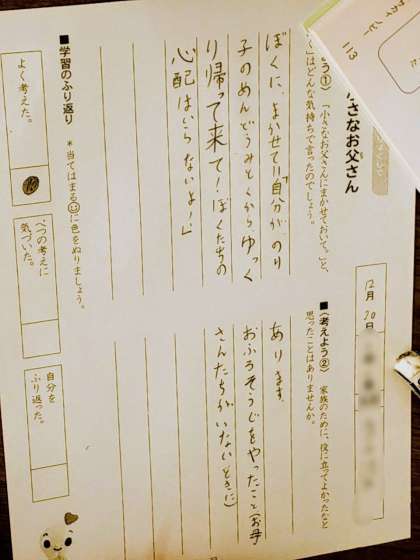 小さなお父さん
12月20日
（考えよう①）「小さなお父さんにまかせておいて。」と、
く」はどんな気持ちで言ったのでしょう。
ぼくに、まかせて!!自分が、のり
子のめんどうみとくから、ゆっく
り帰って来て！ぼくたちの
心配はいらないよ！」
■（考えよう②）家族のために、役に立ってよかったなと
思ったことはありませんか。
あります。
おふろそうじをやったこと(お母
さんたちがいないときに)
■学習のふり返り
＊当てはまる☺に色をぬりましょう。
よく考えた。
べつの考えに
気づいた。
自分を
ふり返った。
113